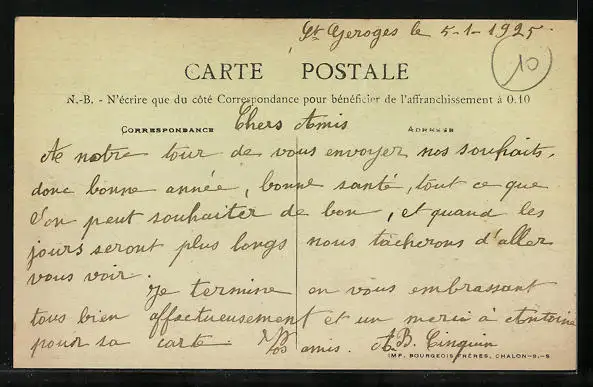 St Geroges le 5-1-1925.
10
CARTE POSTALE
N.-B. - N'écrire que du côté Correspondance pour bénéficier de l'affranchissement à 0.10
CORRESPONDANCE Chers Amis ADRESSE
A notre tour de vous envoyer nos souhaits,
donc bonne année, bonne santé, tout ce que
l'on peut souhaiter de bon, et quand les
jours seront plus longs nous tâcherons d'aller
vous voir.
Je termine en vous embrassant
tous bien affectueusement et un merci à Antoine
pour sa carte. Vos amis. AB. Cinquin
IMP. BOURGEOIS FRÈRES, CHALON-S.-S